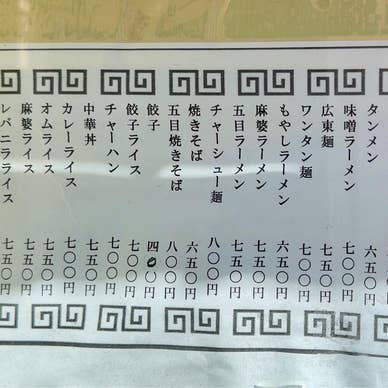 タンメン 六五〇円
味噌ラーメン 七〇〇円
広東麺 七五〇円
ワンタン麺 七〇〇円
もやしラーメン 六五〇円
麻婆ラーメン 七五〇円
五目ラーメン 七五〇円
チャーシュー麺 八〇〇円
焼きそば 六五〇円
五目焼きそば 八〇〇円
餃子 四〇〇円
餃子ライス 七〇〇円
チャーハン 七〇〇円
中華丼 七五〇円
カレーライス 七〇〇円
オムライス 七五〇円
麻婆ライス 七五〇円
レバニラライス 七五〇円